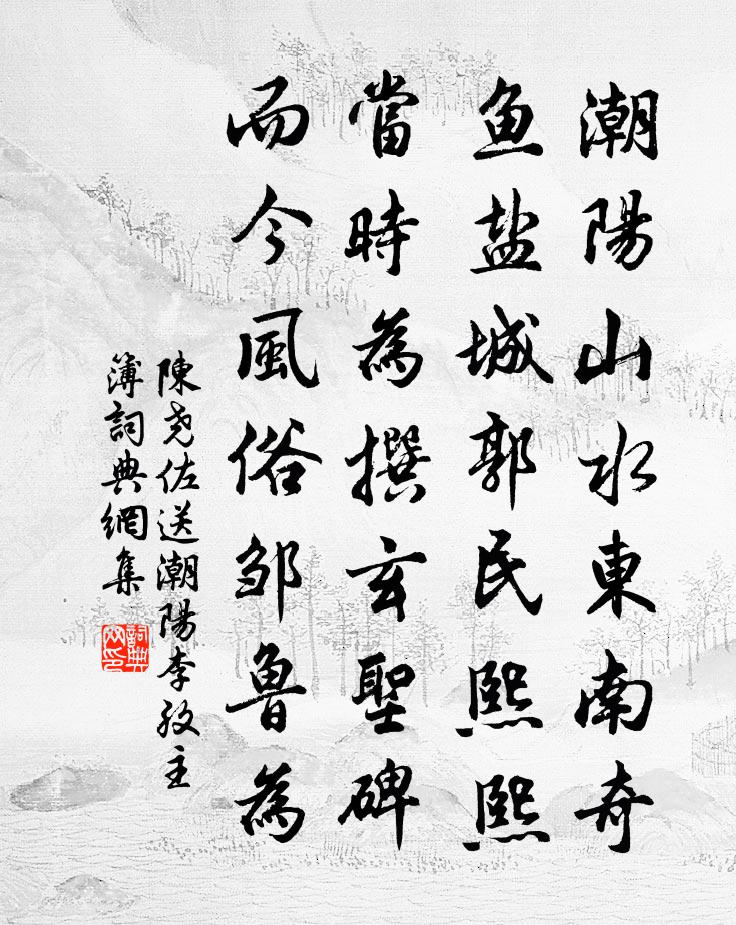 潮陽山水東南奇
鱼盐城郭民熙熙
當時為撰玄聖碑
而今風俗邹魯為
陳尧佐送潮陽李孜主
簿詞典網集
詞典网印